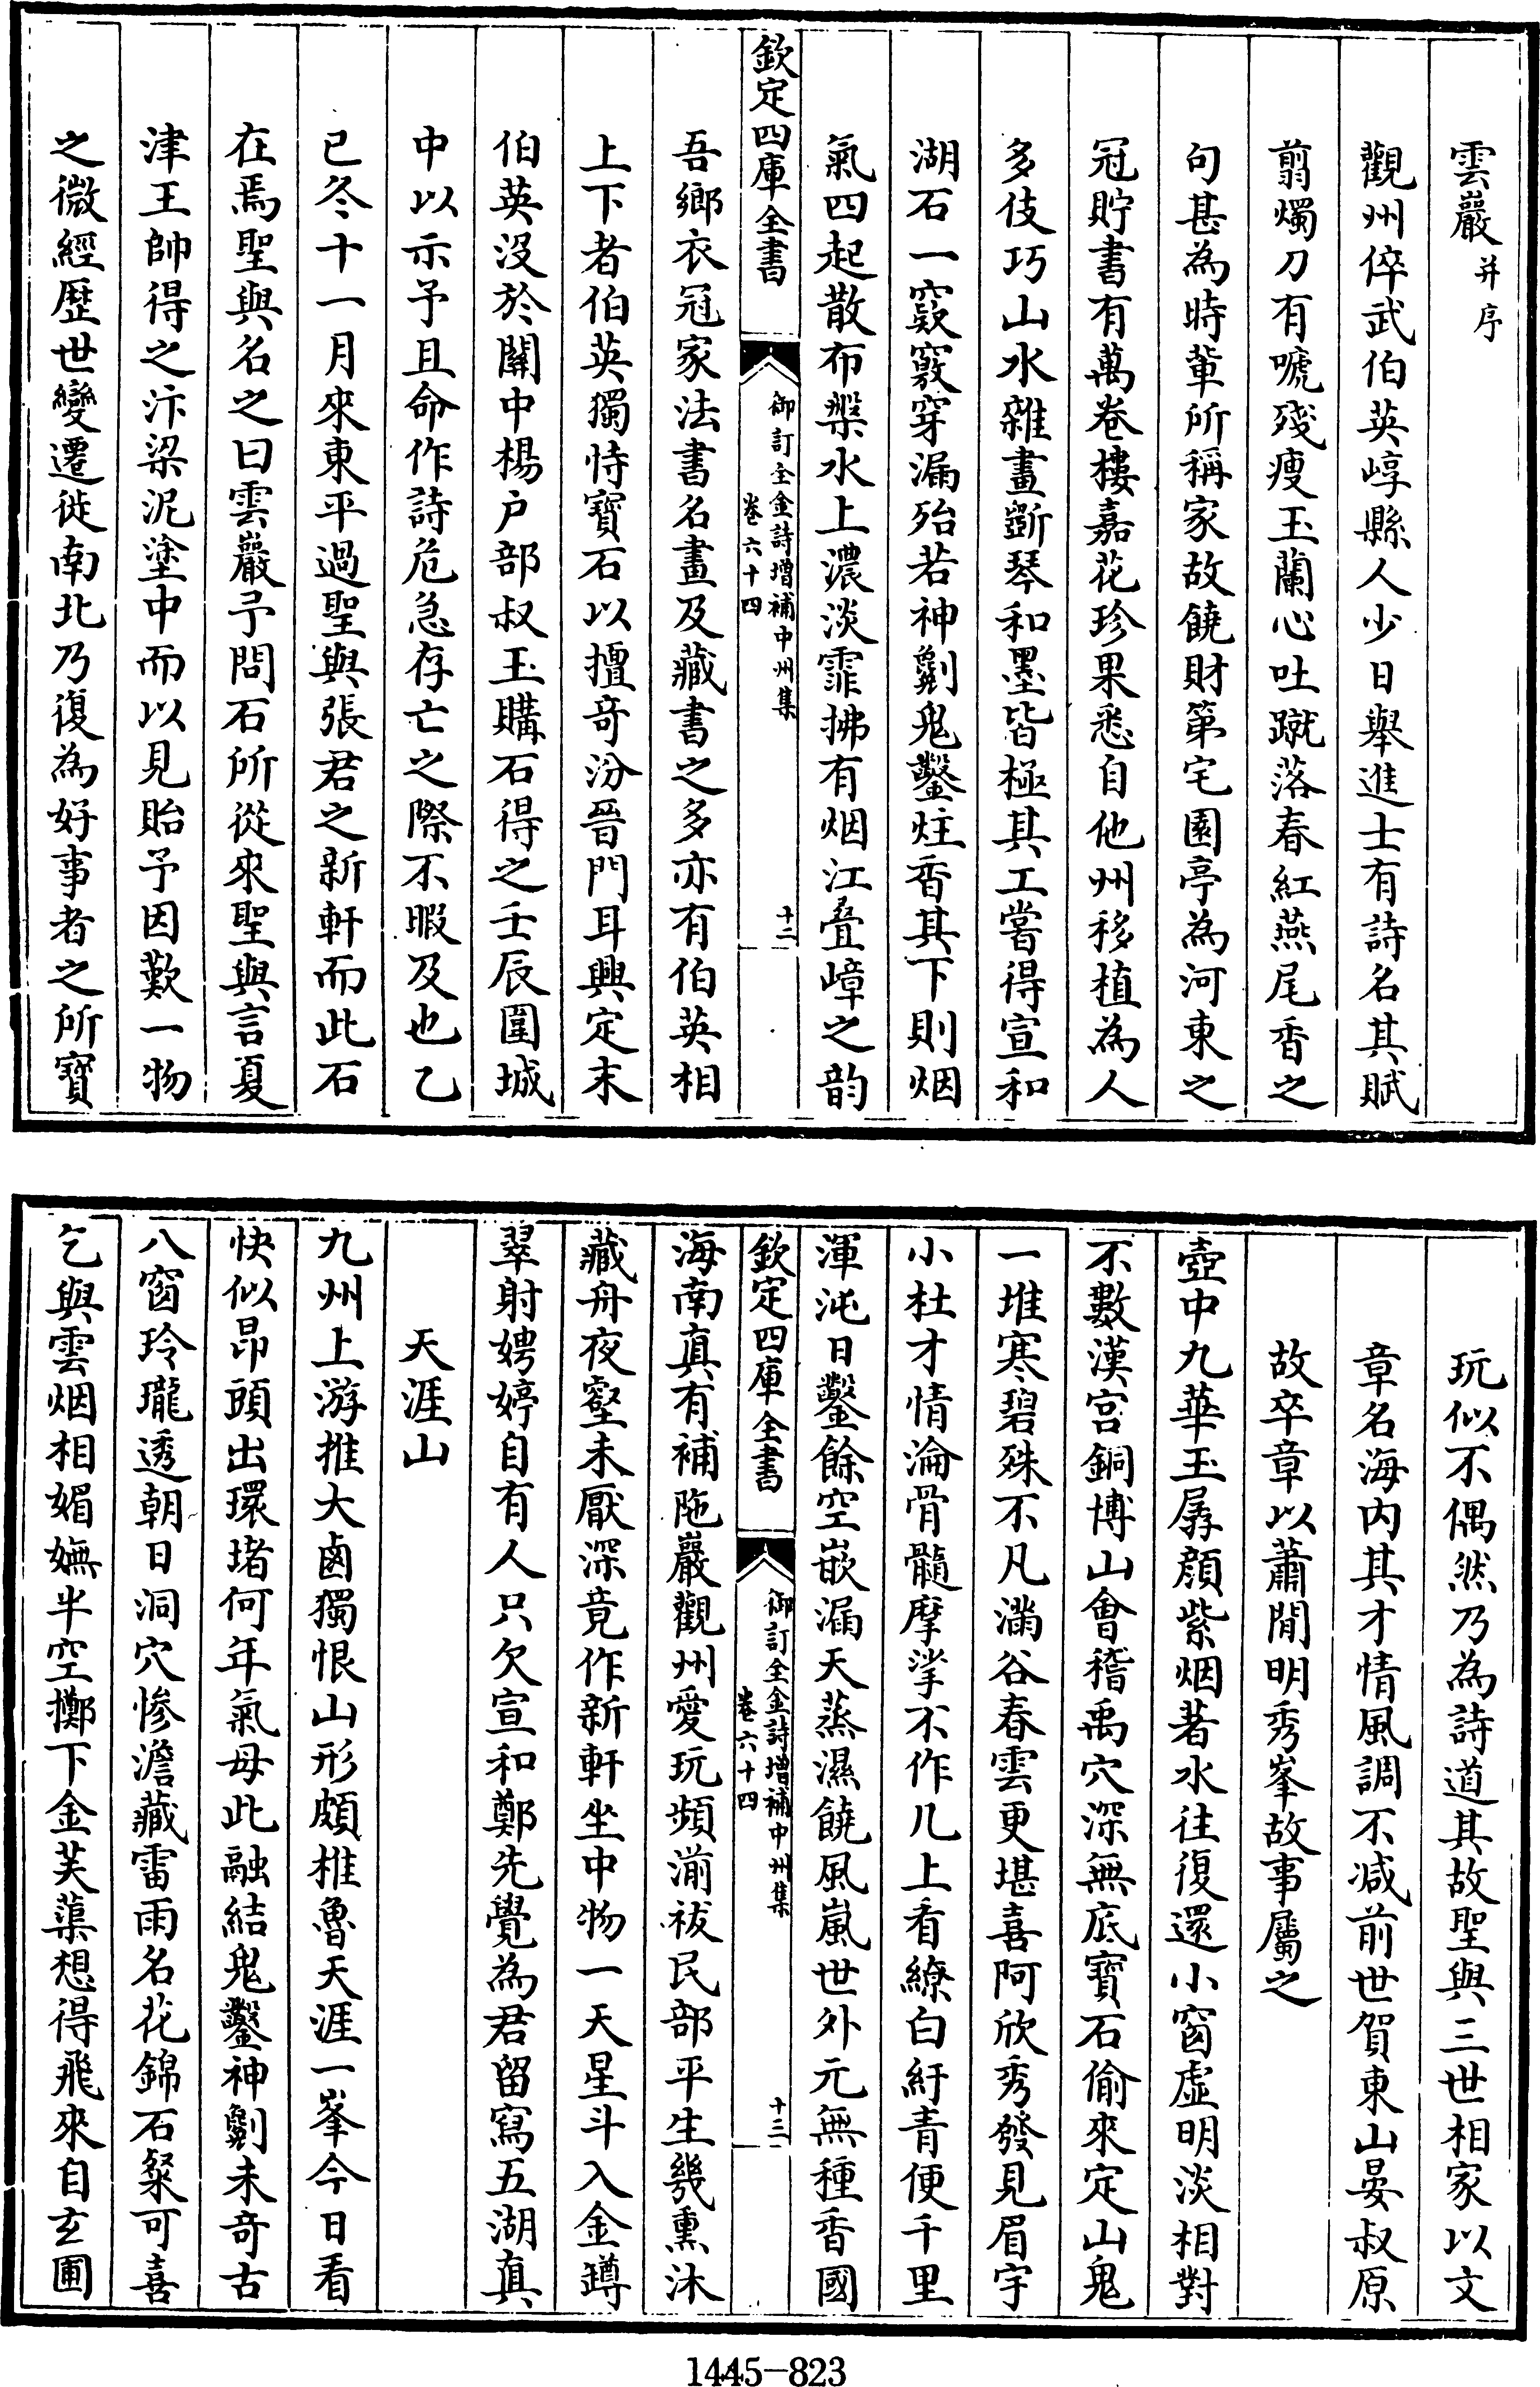 雲巖并序
觀州倅武伯英崞縣人少日舉進士有詩名其賦
翦燭刀有啼殘瘦玉蘭心吐蹴落春紅燕尾香之
句甚為時輩所稱家故饒財第宅園亭為河東之
冠貯書有萬卷樓嘉花珍果悉自他州移植為人
多伎巧山水雜畫斲琴和墨皆極其工嘗得宣和
湖石一窾竅穿漏殆若神劖鬼鑿炷香其下則烟
氣四起散布槃水上濃淡霏拂有烟江疊嶂之韵
欽定四庫全書
御訂全金詩增補中州集
卷六十四
十二
吾鄉衣冠家法書名畫及藏書之多亦有伯英相
上下者伯英獨恃寶石以擅奇汾晉門耳興定末
伯英沒於關中楊户部叔玉購石得之壬辰圍城
中以示予且命作詩危急存亡之際不暇及也乙
已冬十一月來東平過聖與張君之新軒而此石
在焉聖與名之曰雲巖予問石所從來聖與言夏
津王帥得之汴梁泥塗中而以見貽予因歎一物
之微經歷世變遷徙南北乃復為好事者之所寶
玩似不偶然乃為詩道其故聖與三世相家以文
章名海內其才情風調不减前世賀東山晏叔原
故卒章以蕭閒明秀峯故事屬之
壺中九華玉孱顔紫烟著水往復還小窗虛明淡相對
不數漢宮銅博山會稽禹穴深無底寶石偷來定山鬼
一堆寒碧殊不凡滿谷春雲更堪喜阿欣秀發見眉宇
小杜才情淪骨髓摩挲不作几上看繚白紆青便千里
渾沌日鑿餘空嵌漏天蒸濕饒風嵐世外元無種香國
欽定四庫全書
御訂全金詩增補中州集
卷六十四
十三
海南真有補陁巖觀州愛玩頻湔祓民部平生幾熏沐
藏舟夜壑未厭深竟作新軒坐中物一天星斗入金罇
翠射娉婷自有人只欠宣和鄭先覺為君留寫五湖真
天涯山
九州上游推大鹵獨恨山形頗椎魯天涯一峯今日看
快似昂頭出環堵何年氣母此融結鬼鑿神劖未奇古
八窗玲瓏透朝日洞穴慘澹藏雷雨名花錦石粲可喜
乞與雲烟相媚嫵半空擲下金芙蕖想得飛來自玄圃
1445-823